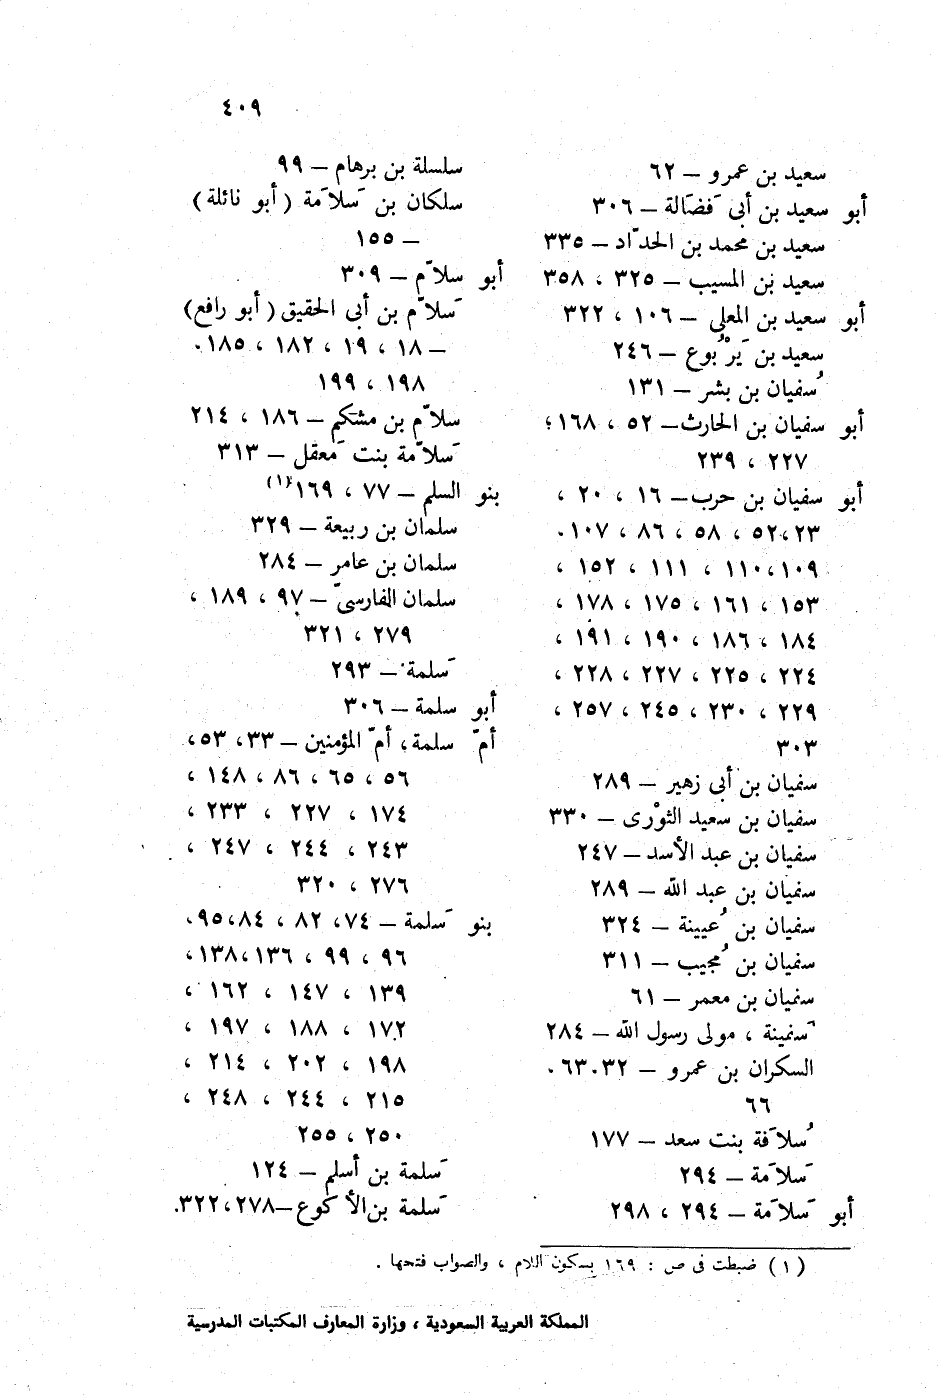 ٤٠٩
سعيد بن عمرو – ٦٢
أبو سعيد بن أبى فَضَالة – ٣٠٦
سعيد بن محمد بن الحدّاد – ٣٣٥
سعيد بن المسيب – ٣٢٥ ، ٣٥٨
أبو سعيد بن المعلى – ١٠٦ ، ٣٢٢
سعيد بن يَرْبُوع – ٢٤٦
سُفيان بن بشر – ١٣١
أبو سفيان بن الحارث – ٥٢ ، ١٦٨ ؛
٢٢٧ ، ٢٣٩
أبو سفيان بن حرب – ١٦ ، ٢٠ ،
٢٣ ، ٥٢ ، ٥٨ ، ٨٦ ، ١٠٧ .
١٠٩ ، ١١٠ ، ١١١ ، ١٥٢ ،
١٥٣ ، ١٦١ ، ١٧٥ ، ١٧٨ ،
١٨٤ ، ١٨٦ ، ١٩٠ ، ١٩١ ،
٢٢٤ ، ٢٢٥ ، ٢٢٧ ، ٢٢٨ ،
٢٢٩ ، ٢٣٠ ، ٢٤٥ ، ٢٥٧ ،
٣٠٣
سفيان بن أبى زهير – ٢٨٩
سفيان بن سعيد الثوْرى – ٣٣٠
سفيان بن عبد الأسد – ٢٤٧
سفيان بن عبد الله – ٢٨٩
سفيان بن عُيينة – ٣٢٤
سفيان بن مُجيب – ٣١١
سفيان بن معمر – ٦١
سَفينة ، مولى رسول الله – ٢٨٤
السكران بن عمرو – ٣٢ . ٦٣ .
٦٦
سُلاَفة بنت سعد – ١٧٧
سَلاَمة – ٢٩٤
أبو سَلاَمة – ٢٩٤ ، ٢٩٨
سلسلة بن برهام – ٩٩
سلكان بن سَلاَمة ( أبو نائلة )
– ١٥٥
أبو سلاّم – ٣٠٩
سَلاّم بن أبى الحقيق ( أبو رافع )
– ١٨ ، ١٩ ، ١٨٢ ، ١٨٥ .
١٩٨ ، ١٩٩
سلاّم بن مشكم – ١٨٦ ، ٢١٤
سَلاّمة بنت مَعقل – ٣١٣
بنو السلم – ٧٧ ، ١٦٩ (١)
سلمان بن ربيعة – ٣٢٩
سلمان بن عامر – ٢٨٤
سلمان الفارسىّ – ٩٧ ، ١٨٩ ،
٢٧٩ ، ٣٢١
سَلمة – ٢٩٣
أبو سلمة – ٣٠٦
أمّ سلمة ، أمّ المؤمنين – ٣٣ ، ٥٣ ،
٥٦ ، ٦٥ ، ٨٦ ، ١٤٨ ،
١٧٤ ، ٢٢٧ ، ٢٣٣ ،
٢٤٣ ، ٢٤٤ ، ٢٤٧ ،
٢٧٦ ، ٣٢٠
بنو سَلمة – ٧٤ ، ٨٢ ، ٨٤ ، ٩٥ ،
٩٦ ، ٩٩ ، ١٣٦ ، ١٣٨ ،
١٣٩ ، ١٤٧ ، ١٦٢ ،
١٧٢ ، ١٨٨ ، ١٩٧ ،
١٩٨ ، ٢٠٢ ، ٢١٤ ،
٢١٥ ، ٢٤٤ ، ٢٤٨ ،
٢٥٠ ، ٢٥٥
سَلمة بن أسلم – ١٢٤
سَلمة بن الأكوع – ٢٧٨ ، ٣٢٢ .
(١) ضبطت فى ص : ١٦٩ بسكون اللام ، والصواب فتحها .
المملكة العربية السعودية ، وزارة المعارف المكتبات المدرسية